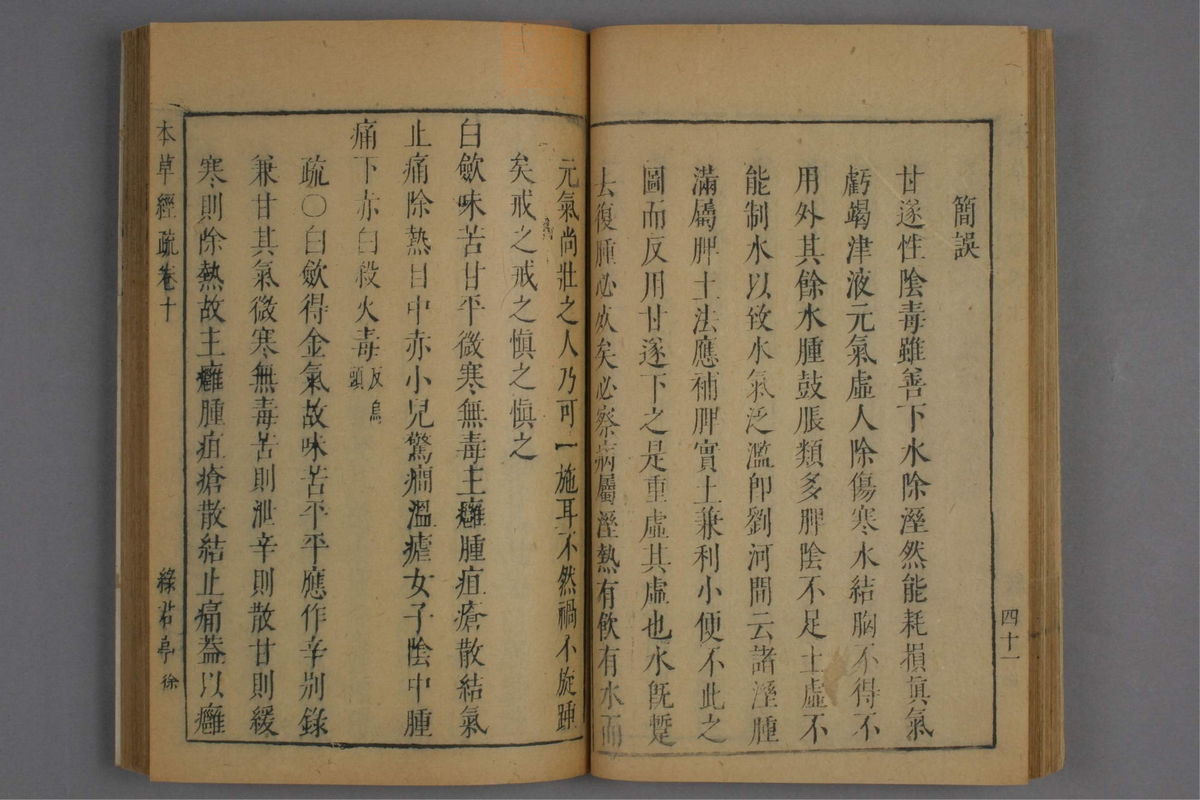 簡誤
甘遂性陰毒雖善下水除溼然能耗損眞氣
虧竭津液元氣虛人除傷寒水結胸不得不
用外其餘水腫鼓脹類多脾陰不足土虛不
能制水以致水氣泛濫卽劉河間云諸溼腫
滿屬脾土法應補脾實土兼利小便不此之
圖而反用甘遂下之是重虛其虛也水旣蹔
去復腫必㱦矣必察病屬溼熱有飲有水而
四十一
元氣尚壯之人乃可一施耳不然禍不旋踵
矣戒之戒之愼之愼之
白歛味苦甘平微寒無毒主癰腫疽瘡散結氣
止痛除熱目中赤小兒驚癎溫瘧女子陰中腫
痛下赤白殺火毒反烏頭
疏〇白歛得金氣故味苦平平應作辛别錄
兼甘其氣微寒無毒苦則泄辛則散甘則緩
寒則除熱故主癰腫疽瘡散結止痛葢以癰
本草經疏卷十
綠君亭 徐